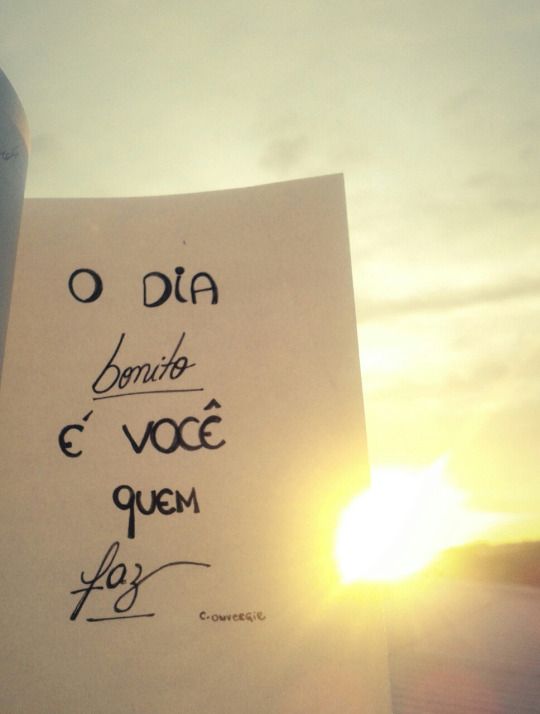 O DIA
bonito
É VOCÊ
QUEM
faz